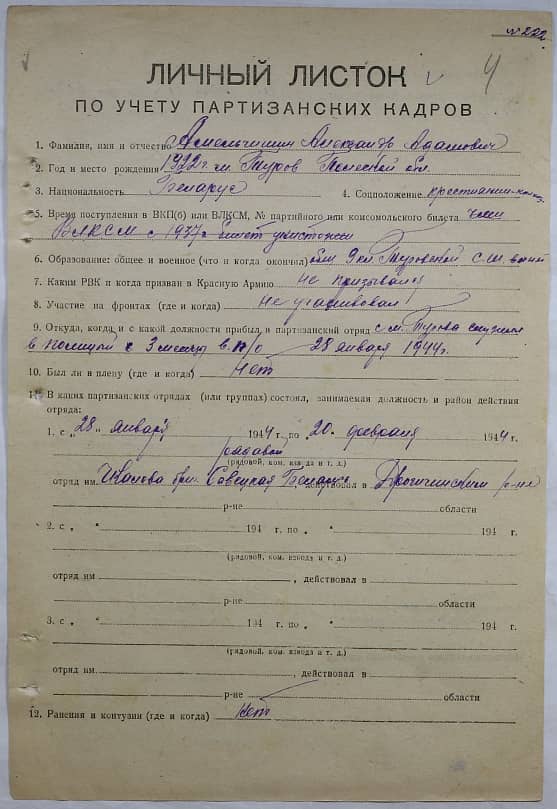 № 222
4
ЛИЧНЫЙ ЛИСТОК
ПО УЧЕТУ ПАРТИЗАНСКИХ КАДРОВ
1. Фамилия, имя и отчество Александр Адамович
2. Год и место рождения 1922 г. м. Туров Полеской обл.
3. Национальность Беларус 4. Соцположение крестьянин-
5. Время поступления в ВКП(б) или ВЛКСМ, № партийного или комсомольского билета член
ВЛКСМ с 1937 г. билет уничтожен
6. Образование: общее и военное (что и когда окончил) 9 кл. Туровской с.ш.
7. Каким РВК и когда призван в Красную Армию не призывался
8. Участие на фронтах (где и когда) не участвовал
9. Откуда, когда и с какой должности прибыл в партизанский отряд с м. Турова служил
в полиции 3 месяца в п/о 28 января 1944 г.
10. Был ли в плену (где и когда) Нет
11. В каких партизанских отрядах (или группах) состоял, занимаемая должность и район действия
отряда:
1. с „28" января 1944 г. по „20" февраля 1944 г.
рядовой
(рядовой, ком. взвода и т. д.)
отряд им. бриг. Савецкая Беларусь действовал в Дрогичинском р-не
р-не области
2. с „ " 194 г. по „ " 194 г.
(рядовой, ком. взвода и т. д.)
отряд им , действовал в
р-не области
3. с „ " 194 г. по „ " 194 г.
(рядовой, ком. взвода и т. д.)
отряд им. , действовал в
р-не области
12. Ранения и контузии (где и когда) Нет